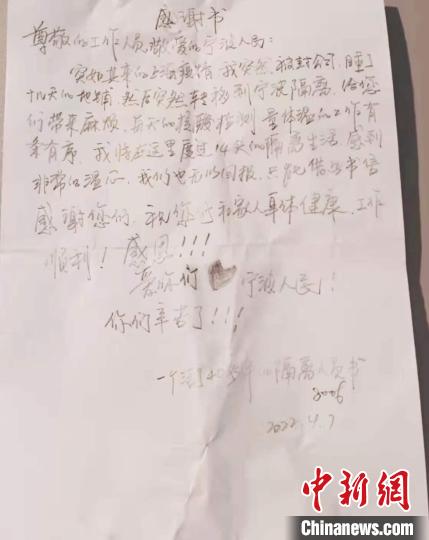 感谢书
尊敬的工作人员,敬爱的宁波人民:
突如其来的上海疫情,我突然被封公司,睡了
十几天的地铺,然后突然转移到宁波隔离,给您
们带来麻烦,每天的核酸检测,量体温的工作有
条有序,我将在这里度过14天的隔离生活,感到
非常的温心,我们也无以回报,只能借此书信
感谢您们,祝您们和家人身体健康,工作
顺利!感恩!!!
爱你们 宁波人民!
你们辛苦了!!!
一个活了 的隔离人员书
2006
2022.4.7
中新网
Chinanews.com